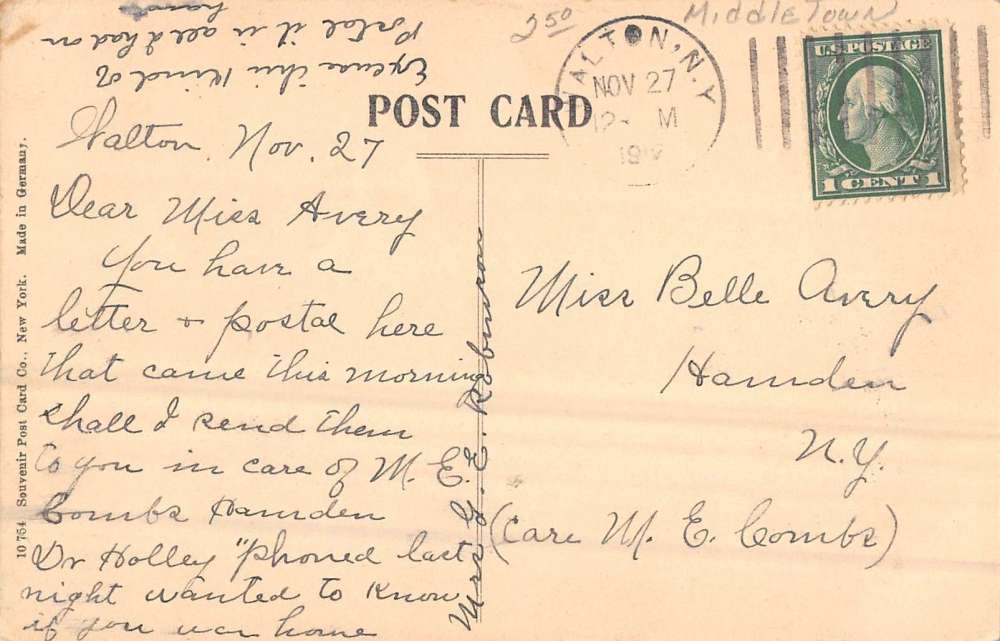 Excuse this kind of
Postal it is all I had on
hand
250
MiddleTown
WALTON, N.Y.
NOV 27
12- M
191
U.S. POSTAGE
1 CENT 1
POST CARD
Walton Nov. 27
Dear Miss Avery
You have a
letter + postal here
that came this morning
shall I send them
to you in care of M. E.
Combs Hamden
Dr Holley "phoned last
night wanted to know
if you was home
Mrs G. E. Robinson
Miss Belle Avery
Hamden
N.Y.
(care M. E. Combs)
10 754 Souvenir Post Card Co., New York. Made in Germany.